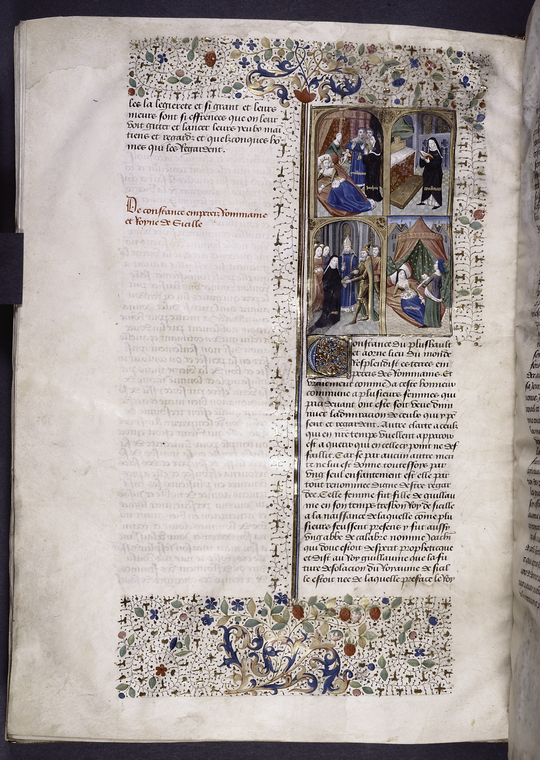 les la legierete et si grant et leurs
meurs sont si effrences que on leur
voit gitter et lancer leurs yeulx mai
tiens et regardz et quelconques ho
mes qui les regardent.
De constance empereris Rommaine
et Royne de Sicille
Constance du plus hault
et aorne lieu du monde
resplendist es terres em
pereis des Rommains. Et
vraiement comme a ceste honneur
commune a plusieurs femmes qui
par deuant ont este soit venue dimi
nuee ladmiracion de ceulx qui y pe
sent et regardent. Autre clarte a ceulx
qui en nre temps veullent apparoir
est a querir qui en celle cy point ne de
fault. Car se par aucun autre men
te ne lui est donne touteffois par
vng seul enfantement est elle par
tout renommee digne destre regar
dee. Celle femme fut fille de guillau
me en son temps tresbon Roy de sicille
a la naissance de laquelle come plu
sieurs feussent presens y fut aussy
vng abbe de calabre nomme Joachi
qui donc estoit desperit prophetique
et dist au Roy guillaume que la fu
ture desolacion du Royaume de sicil
le estoit nee de laquelle preface le Roy